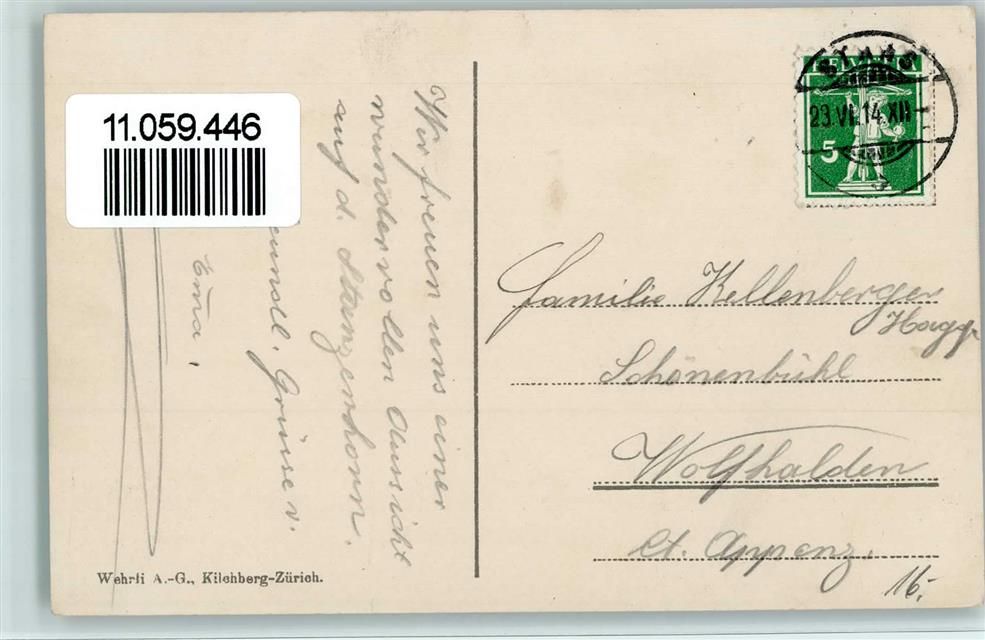 11.059.446
Wir freuen uns einer
wundervollen Aussicht
auf d. Stanzerhorn.
Grüsse v.
Emma.
STANS
23.VI.14.XII
HELVETIA
5
Familie Kellenberger
Hagg
Schönenbühl
Wolfhalden
Ct. Appenz.
16.-
Wehrli A.-G., Kilchberg-Zürich.